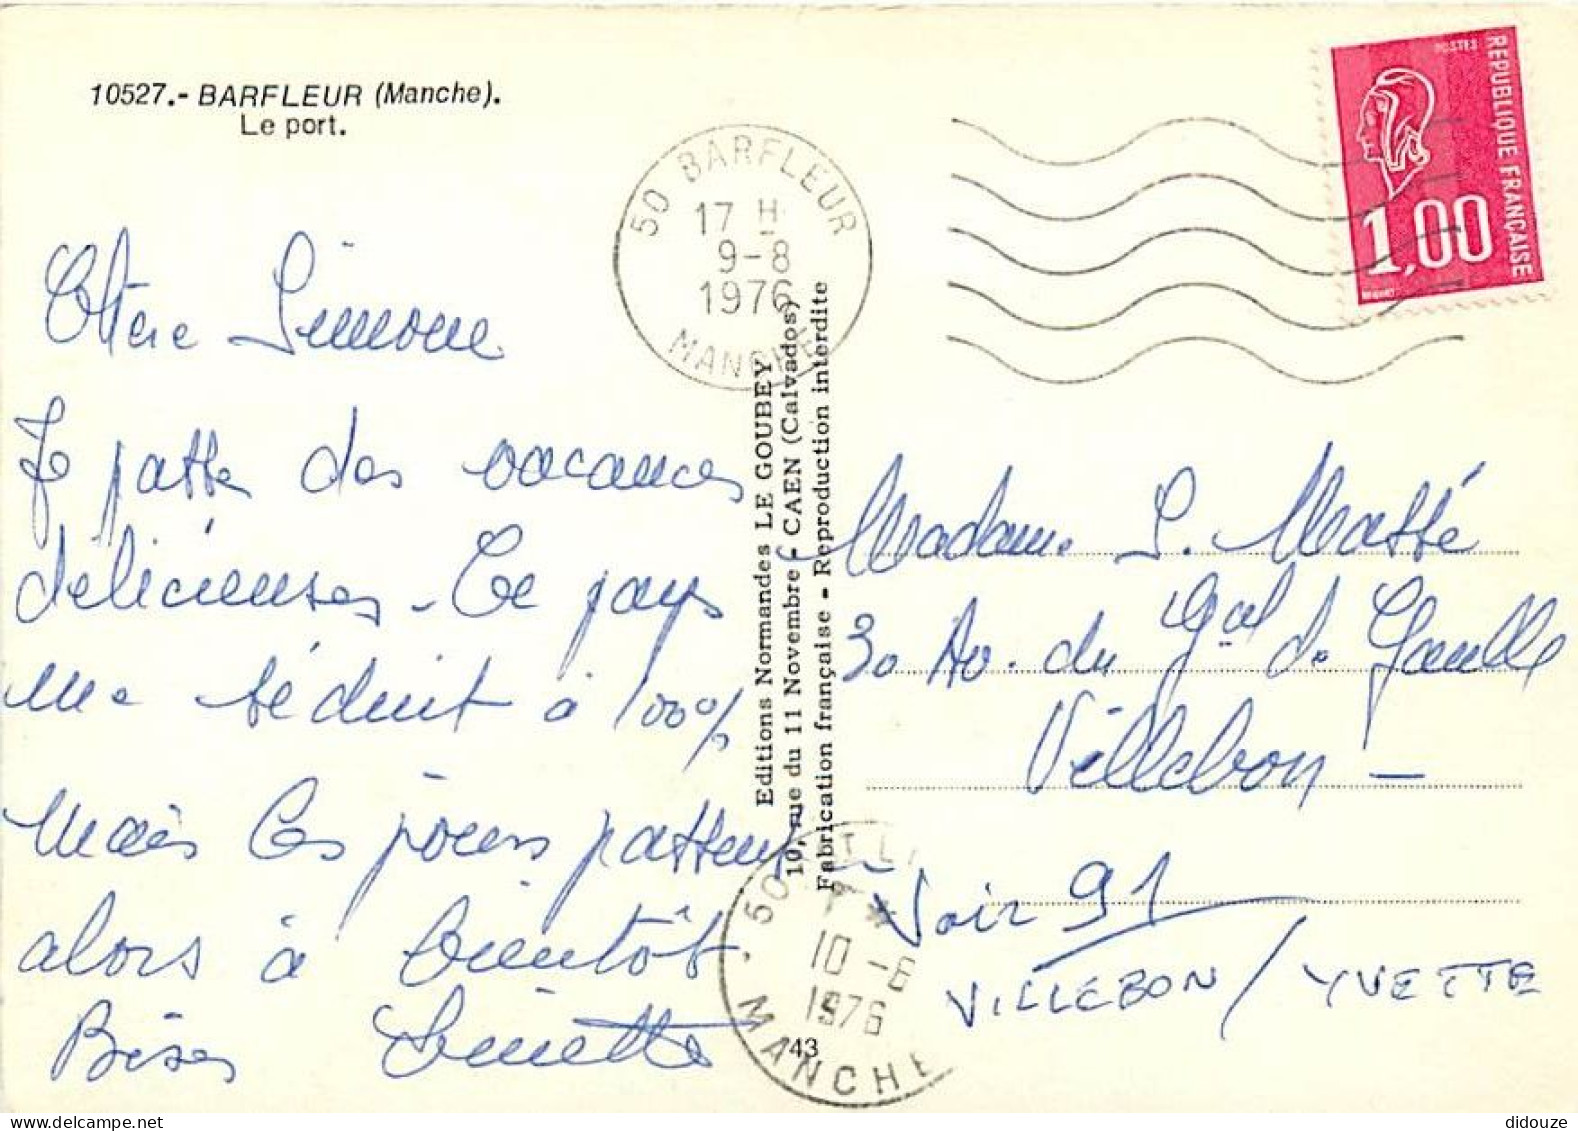 10527.- BARFLEUR (Manche).
Le port.
50 BARFLEUR
17 H
9-8
1976
MANCHE
POSTES
REPUBLIQUE FRANÇAISE
1,00
Chère Simone
Je passe des vacances
délicieuses - Ce pays
me séduit à 100%
Mais les jours passent
alors à bientôt
Bises
Editions Normandes LE GOUBEY
10, rue du 11 Novembre - CAEN (Calvados)
Fabrication française - Reproduction interdite
Madame S. Massé
30 Av. du Gal de Gaulle
Villebon -
Voir 91
VILLEBON / YVETTE
50
10 -8
1976
MANCHE
43
didouze